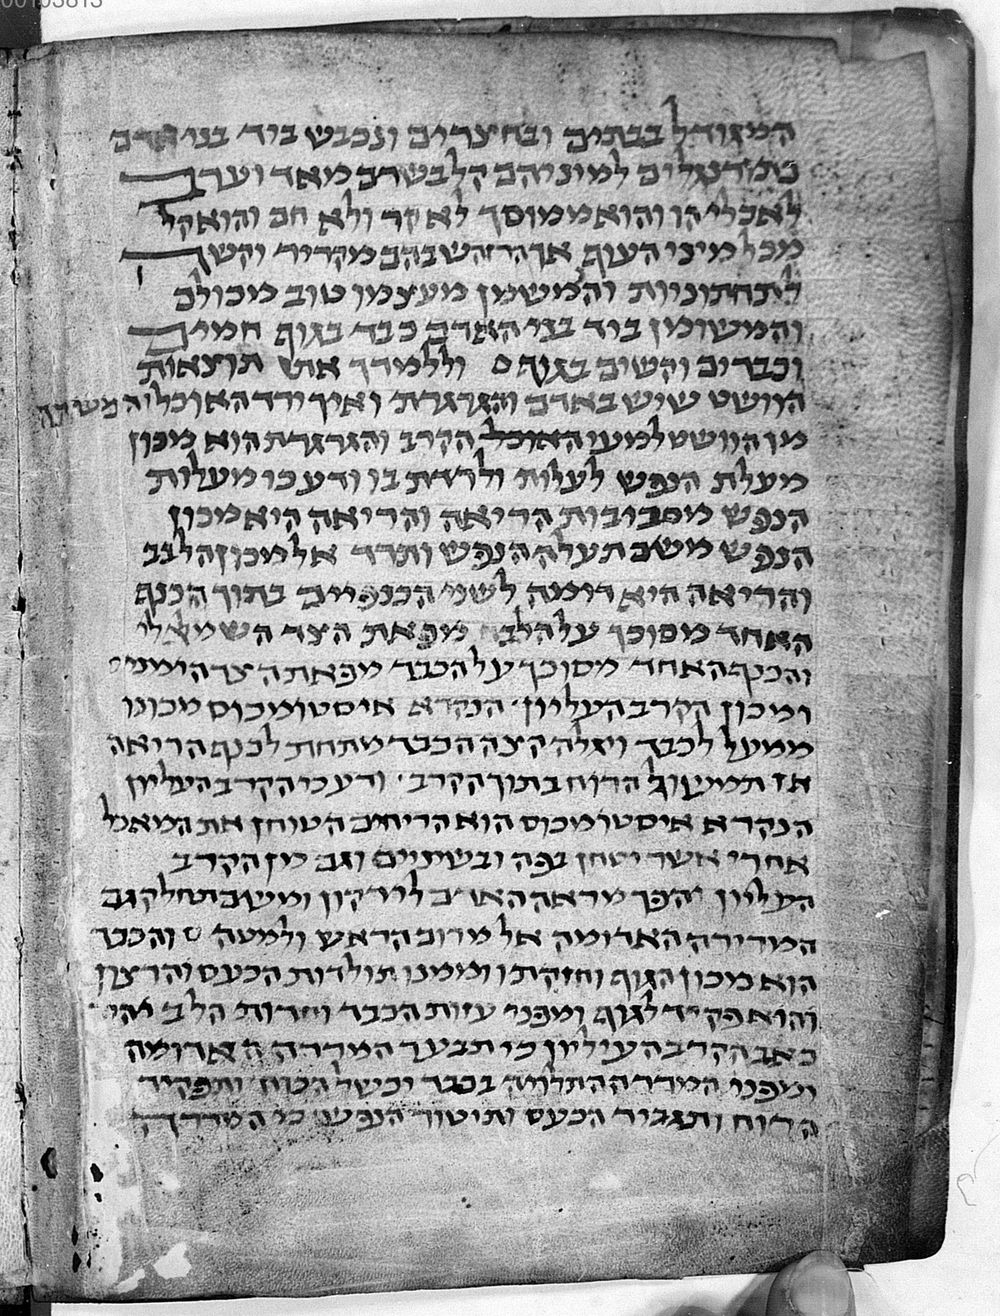 המגודל בבתים ובחצרים ונכבש ביד בני אדם
כתרנגלים למיניהם קל בשרם מאד וערב
לאכליהן והוא ממוסך לא קר ולא חם והוא קל
מכל מיני העוף אך הרזה שבהם מקדיר וקשה
לתחתוניות והמשמן מעצמו טוב מכולם
והמשומן ביד בני האדם כבד בגוף חמים
וכבדים וקשים בגוף וללמדך את תוצאות
הוושט שיש באדם והגרגרת ואיך ירד האוכל והמשתה
מן הוושט למעי האוכל הקרב והגרגרת הוא מכון
מעלת הנפש לעלות ולרדת בו ודע כי מעלות
הנפש מסביבות הריאה והריאה היא מכון
הנפש משם תעלה הנפש ותרד אל מכון הלבב
והריאה היא דומה לשני הכנפיים בתוך הכנף
האחד מסוכך על הלבב מפאת הצד השמאלי
והכנף האחד מסוכך על הכבד מפאת הצד הימני
ומכון הקרב העליון הנקרא איסטומכוס מכונו
ממעל לכבד ויגלה קצה הכבד מתחת לכנף הריאה
אז תמשול הרוח בתוך הקרב ודע כי הקרב העליון
הנקרא איסטומכוס הוא הריחים הטוחן את המאכל
אחרי אשר יטחן בפה ובשינים וגם מן הקרב
העליון יהפך מראה האדם לירקון ומשם תחלק גם
המרירה האדומה אל מרום הראש ולמטה והכבד
הוא מכון הגוף וחזקתו וממנו תולדות הכעס והרצון
והוא פקיד לגוף ומפני עזות הכבד וחרות הלב יהי
כאב הקרב העליון כי תבער המררה האדומה
ומפני המררה התלויה בכבד יכשל הכוח ותפקיד
הרוח ותגביר הכעס ותיטור הנפש כי המררה